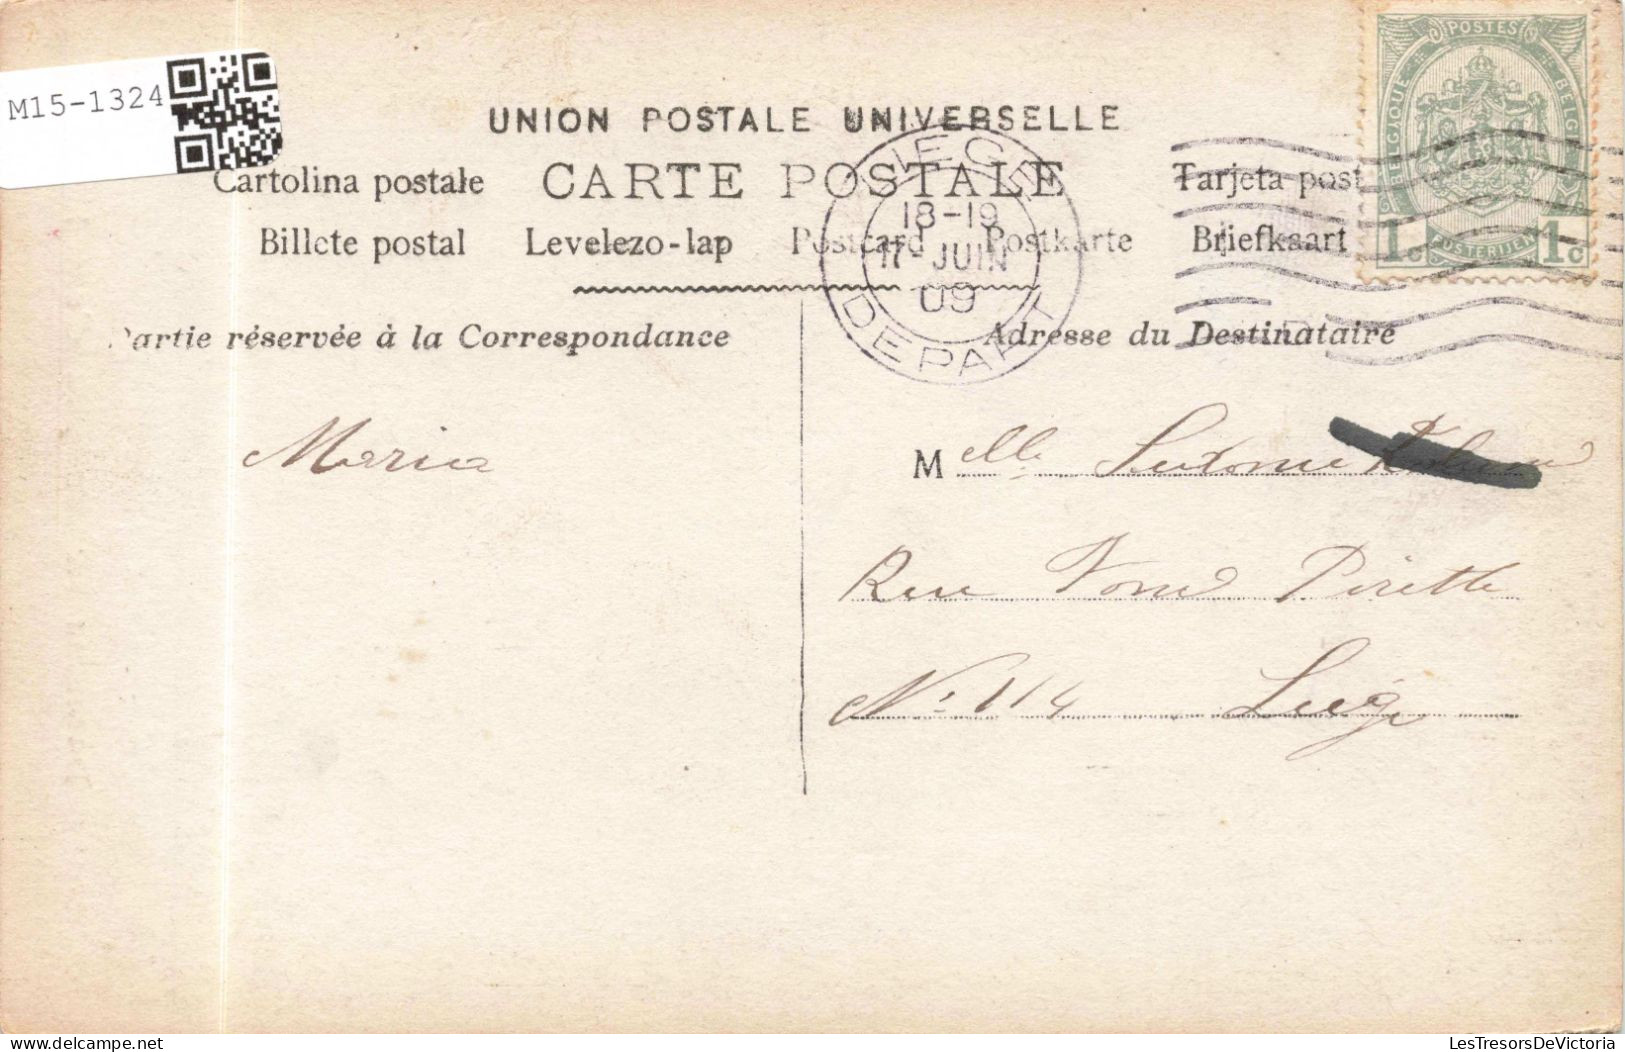 M15-1324
UNION POSTALE UNIVERSELLE
Cartolina postale CARTE POSTALE Tarjeta post
Billete postal Levelezo-lap Postcard Postkarte Briefkaart
LIEGE
18-19
17 JUIN
09
DEPART
POSTES
BELGIQUE BELGIË
1c POSTERIJEN 1c
Partie réservée à la Correspondance
Adresse du Destinataire
Maria
Melle
Rue Fond Pirette
N: 114 Liége
LesTresorsDeVictoria
delcampe.net